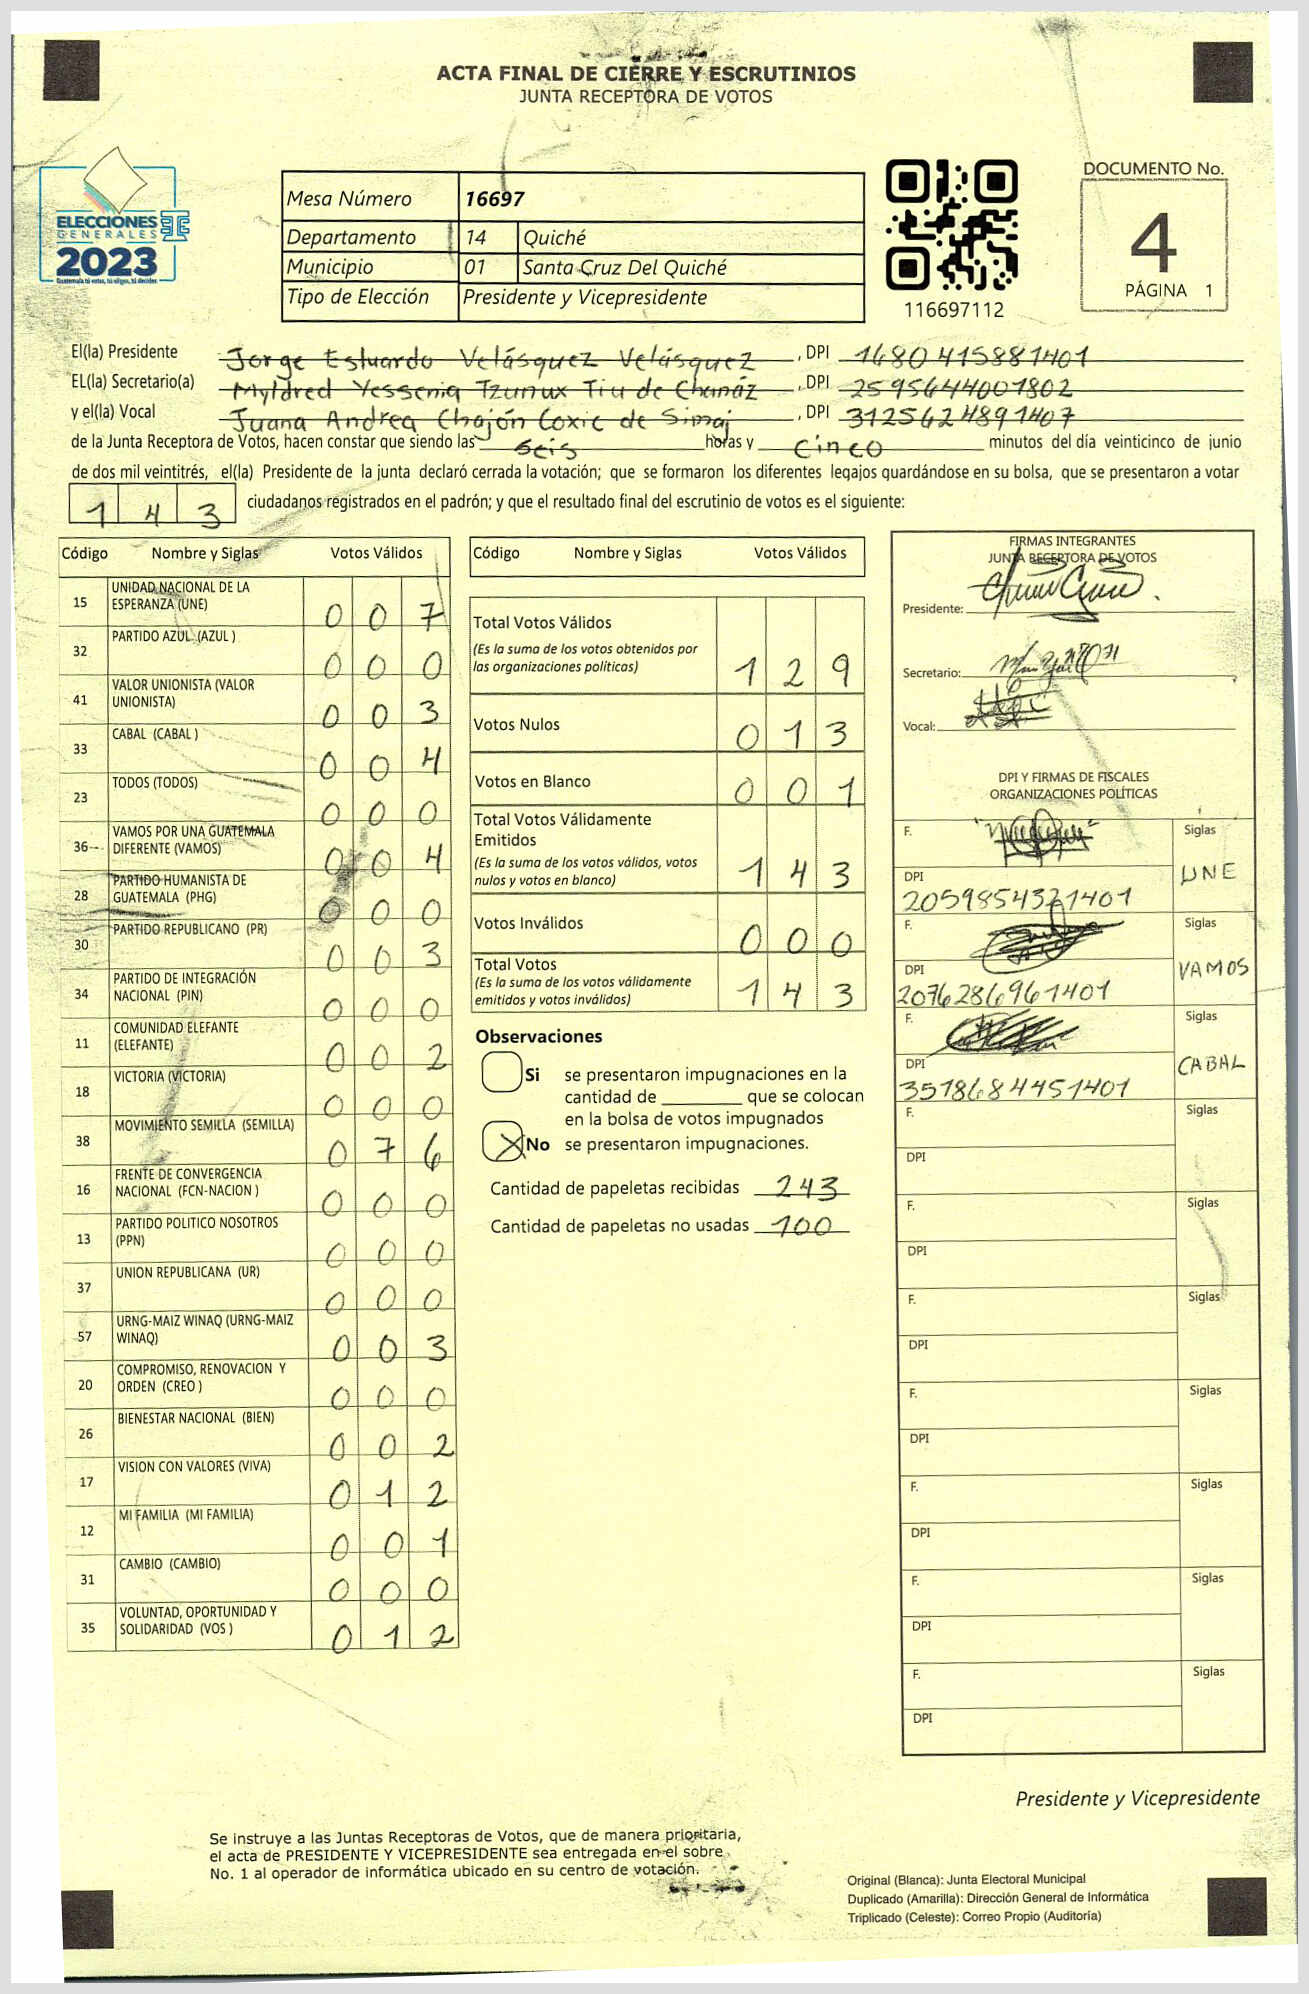 ACTA FINAL DE CIERRE Y ESCRUTINIOS
JUNTA RECEPTORA DE VOTOS
ELECCIONES
GENERALES
2023
Guatemala tú votas, tú eliges, tú decides
Mesa Número 16697
Departamento 14 Quiché
Municipio 01 Santa Cruz Del Quiché
Tipo de Elección Presidente y Vicepresidente
116697112
DOCUMENTO No.
4
PÁGINA 1
El(la) Presidente Jorge Estuardo Velásquez Velásquez, DPI 1680415881401
EL(la) Secretario(a) Myldred Yessenia Tzunux Tiu de , DPI 2595644001802
y el(la) Vocal Juana Andrea Chajón Coxic de Simaj, DPI 3125624891407
de la Junta Receptora de Votos, hacen constar que siendo las seis horas y cinco minutos del día veinticinco de junio
de dos mil veintitrés, el(la) Presidente de la junta declaró cerrada la votación; que se formaron los diferentes legajos guardándose en su bolsa, que se presentaron a votar
143 ciudadanos registrados en el padrón; y que el resultado final del escrutinio de votos es el siguiente:
Código Nombre y Siglas Votos Válidos
15 UNIDAD NACIONAL DE LA ESPERANZA (UNE) 0 0 7
32 PARTIDO AZUL (AZUL ) 0 0 0
41 VALOR UNIONISTA (VALOR UNIONISTA) 0 0 3
33 CABAL (CABAL ) 0 0 4
23 TODOS (TODOS) 0 0 0
36 VAMOS POR UNA GUATEMALA DIFERENTE (VAMOS) 0 0 4
28 PARTIDO HUMANISTA DE GUATEMALA (PHG) 0 0 0
30 PARTIDO REPUBLICANO (PR) 0 0 3
34 PARTIDO DE INTEGRACIÓN NACIONAL (PIN) 0 0 0
11 COMUNIDAD ELEFANTE (ELEFANTE) 0 0 2
18 VICTORIA (VICTORIA) 0 0 0
38 MOVIMIENTO SEMILLA (SEMILLA) 0 7 6
16 FRENTE DE CONVERGENCIA NACIONAL (FCN-NACION ) 0 0 0
13 PARTIDO POLITICO NOSOTROS (PPN) 0 0 0
37 UNION REPUBLICANA (UR) 0 0 0
57 URNG-MAIZ WINAQ (URNG-MAIZ WINAQ) 0 0 3
20 COMPROMISO, RENOVACION Y ORDEN (CREO ) 0 0 0
26 BIENESTAR NACIONAL (BIEN) 0 0 2
17 VISION CON VALORES (VIVA) 0 1 2
12 MI FAMILIA (MI FAMILIA) 0 0 1
31 CAMBIO (CAMBIO) 0 0 0
35 VOLUNTAD, OPORTUNIDAD Y SOLIDARIDAD (VOS ) 0 1 2
Código Nombre y Siglas Votos Válidos
Total Votos Válidos 1 2 9
(Es la suma de los votos obtenidos por
las organizaciones políticas)
Votos Nulos 0 1 3
Votos en Blanco 0 0 1
Total Votos Válidamente
Emitidos 1 4 3
(Es la suma de los votos válidos, votos
nulos y votos en blanco)
Votos Inválidos 0 0 0
Total Votos 1 4 3
(Es la suma de los votos válidamente
emitidos y votos inválidos)
Observaciones
Si se presentaron impugnaciones en la
cantidad de ________ que se colocan
en la bolsa de votos impugnados
X No se presentaron impugnaciones.
Cantidad de papeletas recibidas 243
Cantidad de papeletas no usadas 100
FIRMAS INTEGRANTES
JUNTA RECEPTORA DE VOTOS
Presidente:
Secretario:
Vocal:
DPI Y FIRMAS DE FISCALES
ORGANIZACIONES POLÍTICAS
F. Siglas
UNE
DPI
2059854321401
F. Siglas
VAMOS
DPI
2076286961401
F. Siglas
CABAL
DPI
3518684451401
F. Siglas
DPI
F. Siglas
DPI
F. Siglas
DPI
F. Siglas
DPI
F. Siglas
DPI
F. Siglas
DPI
F. Siglas
DPI
Presidente y Vicepresidente
Se instruye a las Juntas Receptoras de Votos, que de manera prioritaria,
el acta de PRESIDENTE Y VICEPRESIDENTE sea entregada en el sobre
No. 1 al operador de informática ubicado en su centro de votación.
Original (Blanca): Junta Electoral Municipal
Duplicado (Amarilla): Dirección General de Informática
Triplicado (Celeste): Correo Propio (Auditoría)